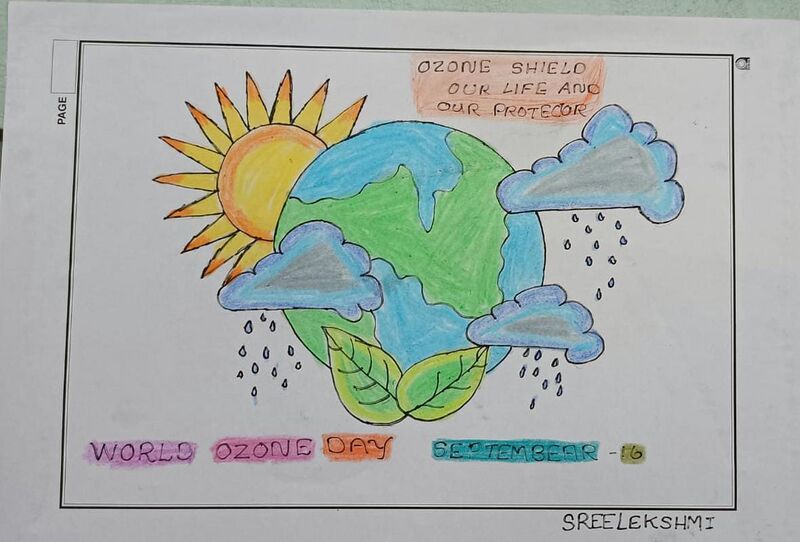 PAGE
OZONE SHIELD
OUR LIFE AND
OUR PROTECOR
WORLD OZONE DAY SEPTEMBEAR - 16
SREELEKSHMI